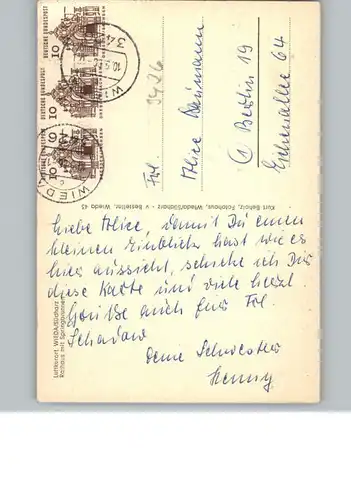 Liebe Alice, damit Du einen
kleinen Einblick hast wie es
hier aussieht, schicke ich Dir
diese Karte und viele herzl
Grüße auch für Frl.
Schadow
Deine Schwester
Henny
Frl.
Alice Naumann
1 Berlin 19
Eschenallee 64
3426
Kurt Beholz, Fotohaus, Wieda/Südharz · Bestellnr. Wieda 43
Luftkurort WIEDA/Südharz
Rathaus mit Springbrunnen
DEUTSCHE BUNDESPOST
10
DEUTSCHE BUNDESPOST
10
10
WIEDA